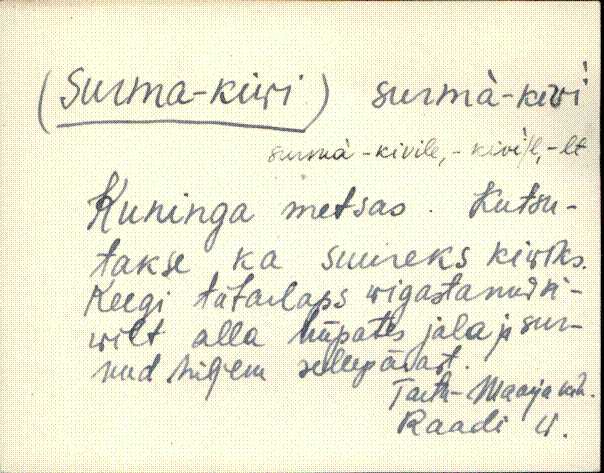 (Surma-kiwi) surmà-kiwì
surmà-kivile, -kivìl, -lt
Kuninga metsas. Kutsu-
takse ka suureks kiwiks.
Keegi tütarlaps wigastanud ki-
wilt alla hüpates jala ja sur-
nud hiljem sellepärast.
Tartu-Maarja khk.
Raadi w.